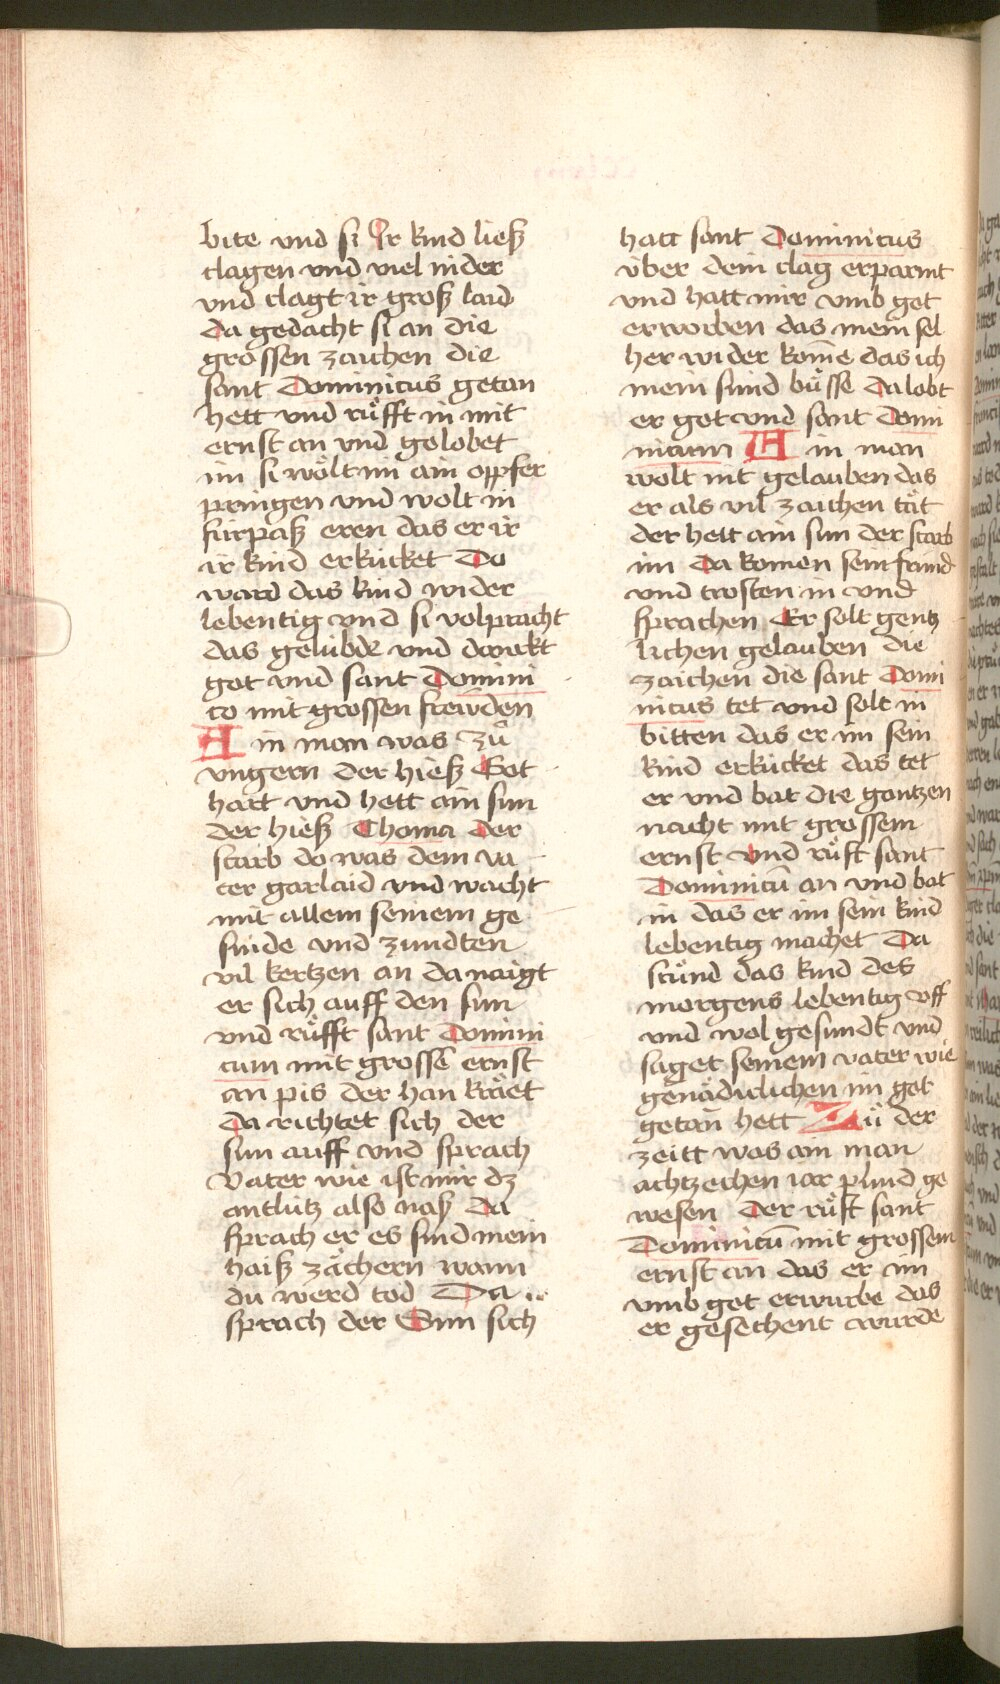 bite vnd si Ir kind ließ
clagen vnd viel nider
vnd clagt ir groß laid
da gedacht si an die
grossen zaichen die
sant Dominicus getan
hett vnd růfft in mit
ernst an vnd gelobet
im si wölt im ain opfer
pringen vnd wolt in
fürpaß eren das er ir
ir kind erkücket Do
ward das kind wider
lebentig vnd si volpracht
das gelübde vnd danckt
got vnd sant Domini
co mit grossen frewden
Ain man was zů
vngern der hieß Got
hart vnd hett ain sun
der hieß Thoma der
starb do was dem va
ter gar laid vnd wacht
mit allem seinem ge
sinde vnd zundten
vil kertzen an da naigt
er sich auff den sun
vnd růfft sant Domini
cum mit grossē ernst
an pis der han kräet
da richtet sich der
sun auff vnd sprach
Vater wie ist mir dz
antlütz also naß Da
sprach er es sind mein
haiß zächern wann
du werd tod Da
sprach der Sun sich
hatt sant Dominicus
über dein clag erparmt
vnd hatt mir vmb got
erworben das mein sel
her wider kome das ich
mein sünd büsse Da lobt
er got vnd sant Domi
nicum Ain man
wolt nit gelauben das
er als vil zaichen tät
der hett ain sun der starb
im Da komen sein fraind
vnd trosten in vnd
sprachen Er solt gentz
lichen gelauben die
zaichen die sant Domi
nicus tet vnd solt in
bitten das er im sein
kind erkücket das tet
er vnd bat die gantzen
nacht mit grossem
ernst vnd růft sant
Dominicū an vnd bat
in das er im sein kind
lebentig machet Da
stůnd das kind des
morgens lebentig vff
vnd wol gesundt vnd
saget seinem vater wie
genädiclichen im got
getan hett Zů der
zeitt was ain man
achtzechen iar plind ge
wesen Der růft sant
Dominicū mit grossem
ernst an das er im
vmb got erwurbe das
er gesechent wurde